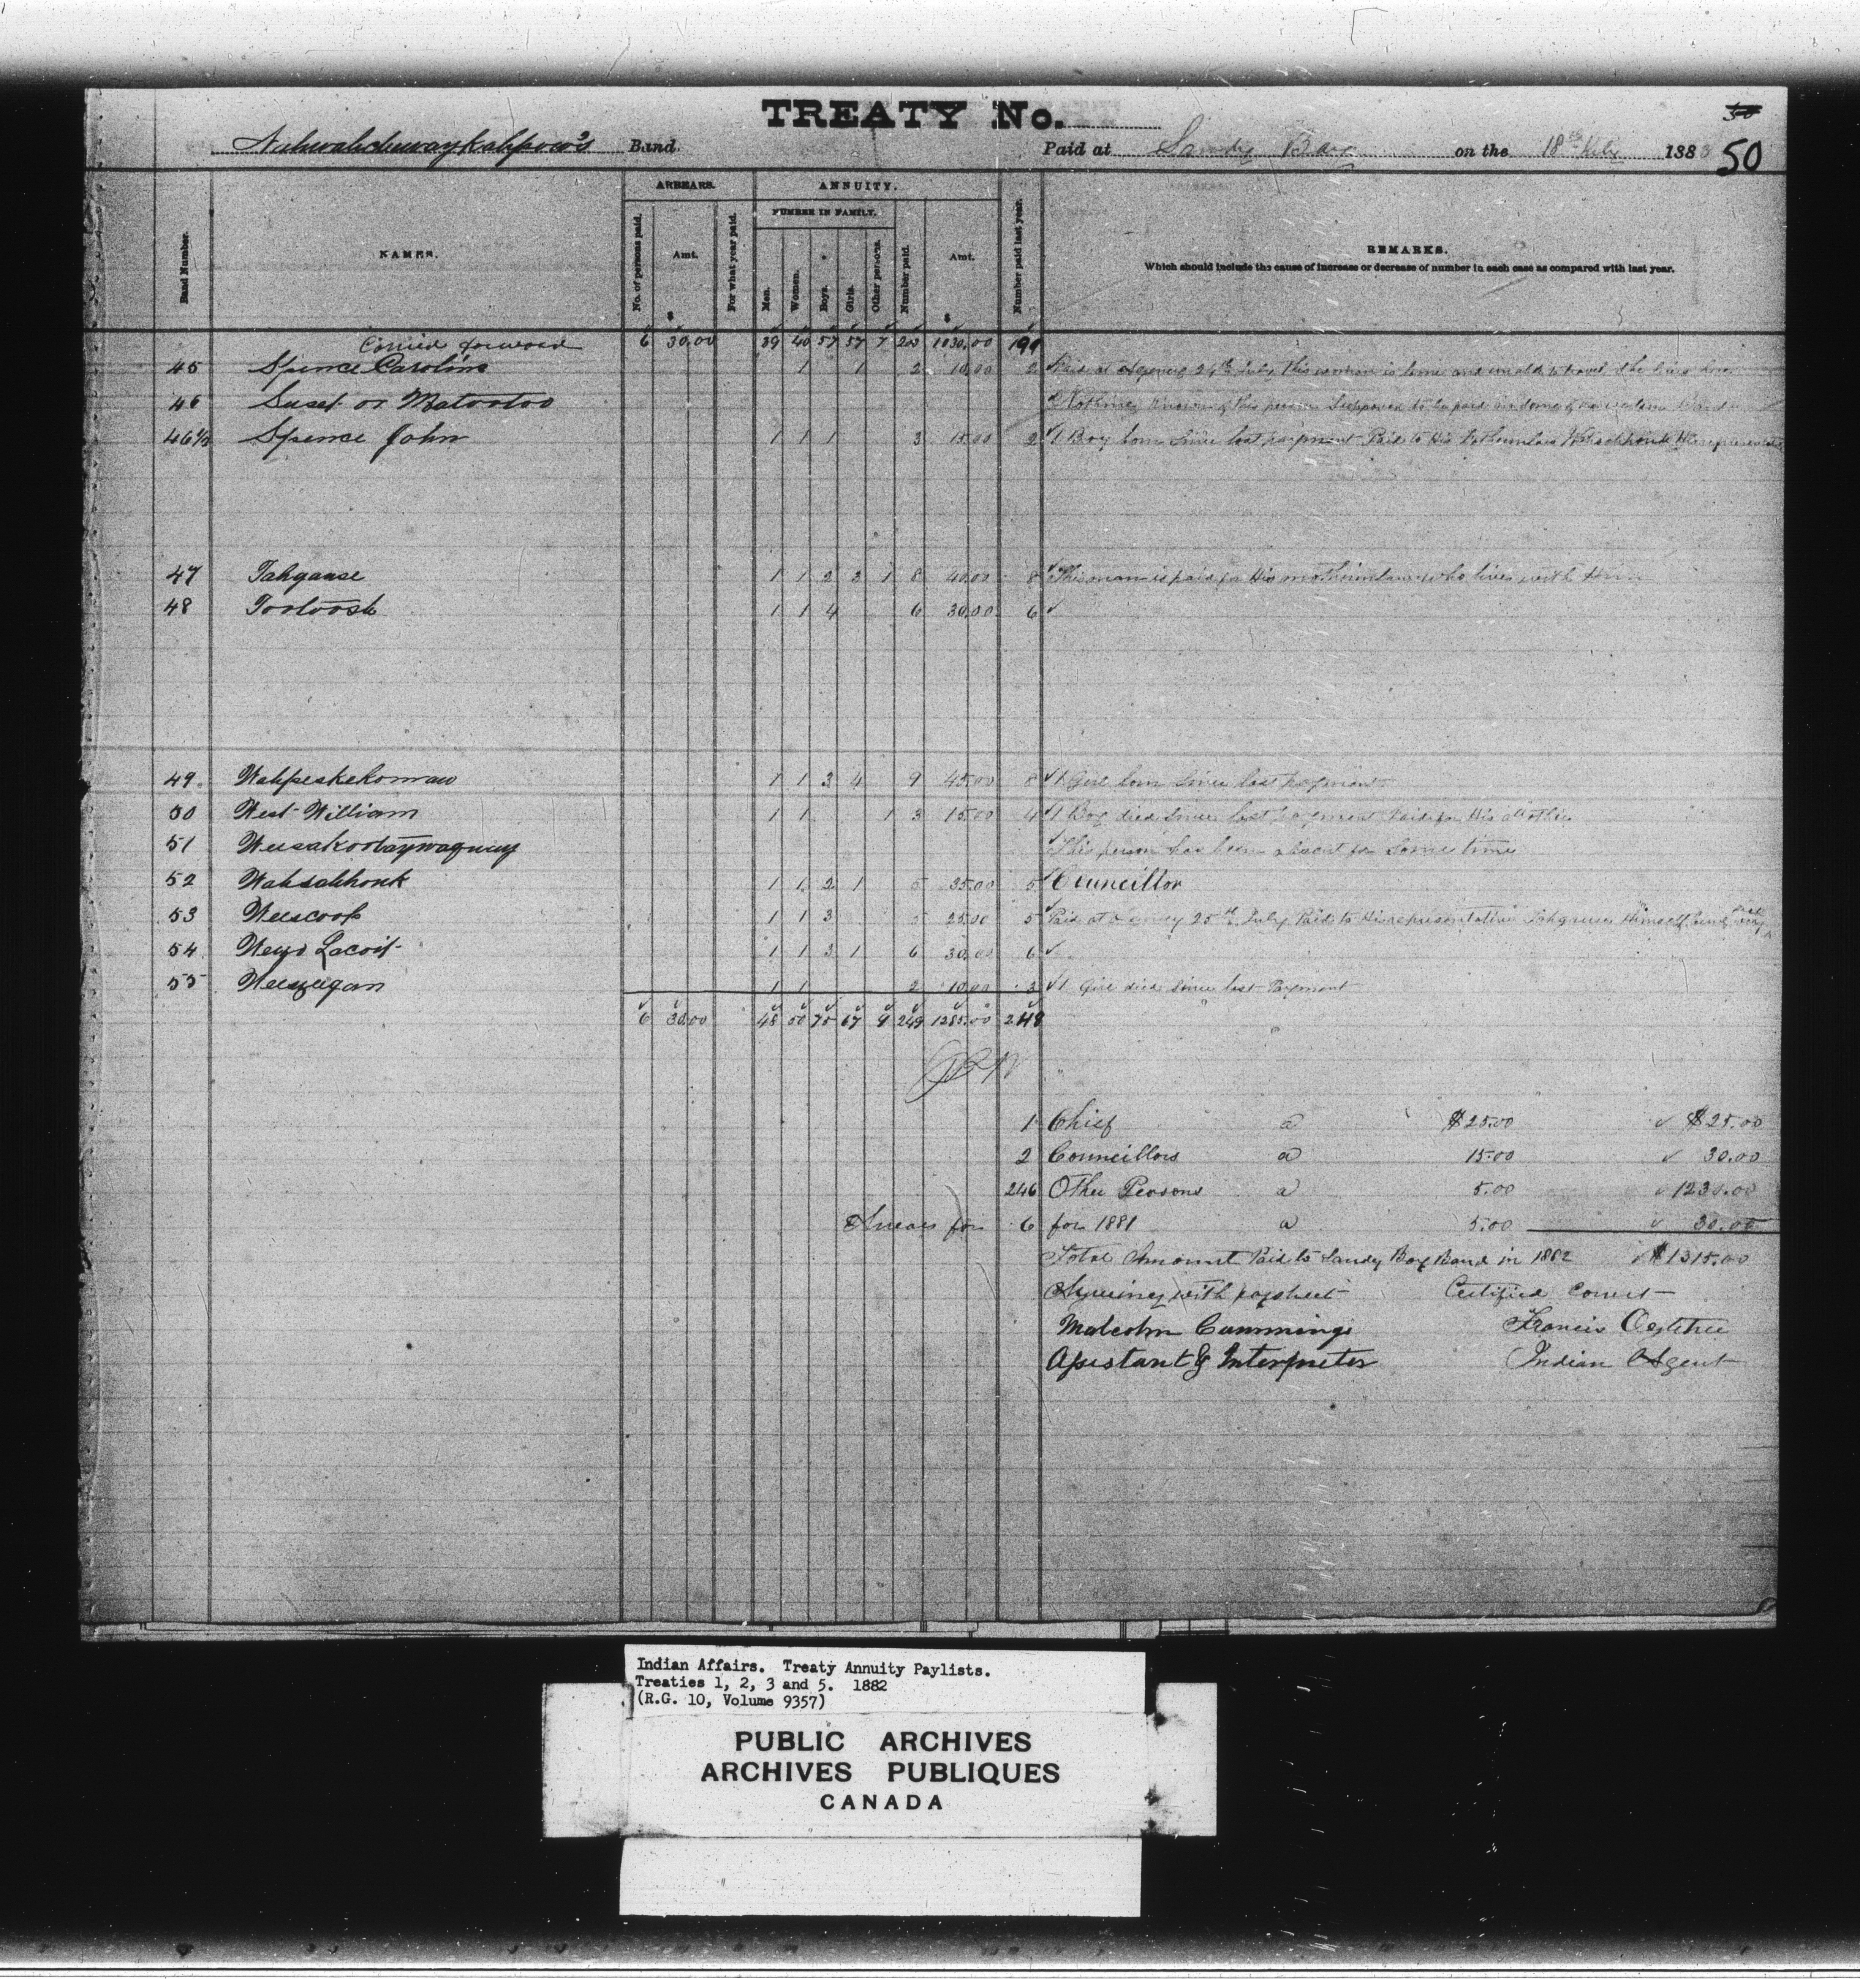 TREATY No.
50
Band. Paid at Sandy Bay on the 18th July 188 50
Band Number. NAMES. ARREARS. ANNUITY. Number paid last year. REMARKS.
No. of persons paid. Amt. $ For what year paid. NUMBER IN FAMILY. Men. Women. Boys. Girls. Other persons. Number paid. Amt. $
Which should include the cause of increase or decrease of number in each case as compared with last year.
Carried forward 6 30.00 39 40 57 57 7 200 1030.00 199
45 Spence Caroline 1 1 2 10.00 2 Paid at Agency 24th July this woman is lame and unable to travel She lives here
46 Suset or Matootoo Nothing known of this person Supposed to be paid in some
46½ Spence John 1 1 1 3 15.00 2 1 Boy born Since last payment Paid to His
47 Tahganse 1 1 2 3 1 8 40.00 8 This man is paid for His motherinlaw who lives with Him
48 Tootoosh 1 1 4 6 30.00 6
49. Wahpeskekomaw 1 1 3 4 9 45.00 8 1 Girl born Since last payment
50 West William 1 1 1 3 15.00 4 1 Boy died Since last payment Paid for His Mother
51 This person has been absent for Some time
52 Wahsahhonk 1 1 2 1 5 35.00 5 Councillor
53 Weescoop 1 1 3 5 25.00 5 Paid at Agency 25th July Paid to His representative Tahganse Himself being
54 Weyo Lacoit 1 1 3 1 6 30.00 6
55 1 1 2 10.00 3 1 Girl died Since last Payment
6 30.00 48 50 75 67 9 249 1285.00 248
1 Chief a $25.00 $25.00
2 Councillors a 15.00 30.00
246 Other Persons a 5.00 1230.00
Arrears for 6 for 1881 a 5.00 30.00
Total Amount Paid to Sandy Bay Band in 1882 $1315.00
Agreeing with paysheet Certified Correct
Malcolm Cummings Francis Ogletree
Assistant & Interpreter Indian Agent
Indian Affairs. Treaty Annuity Paylists.
Treaties 1, 2, 3 and 5. 1882
(R.G. 10, Volume 9357)
PUBLIC ARCHIVES
ARCHIVES PUBLIQUES
CANADA